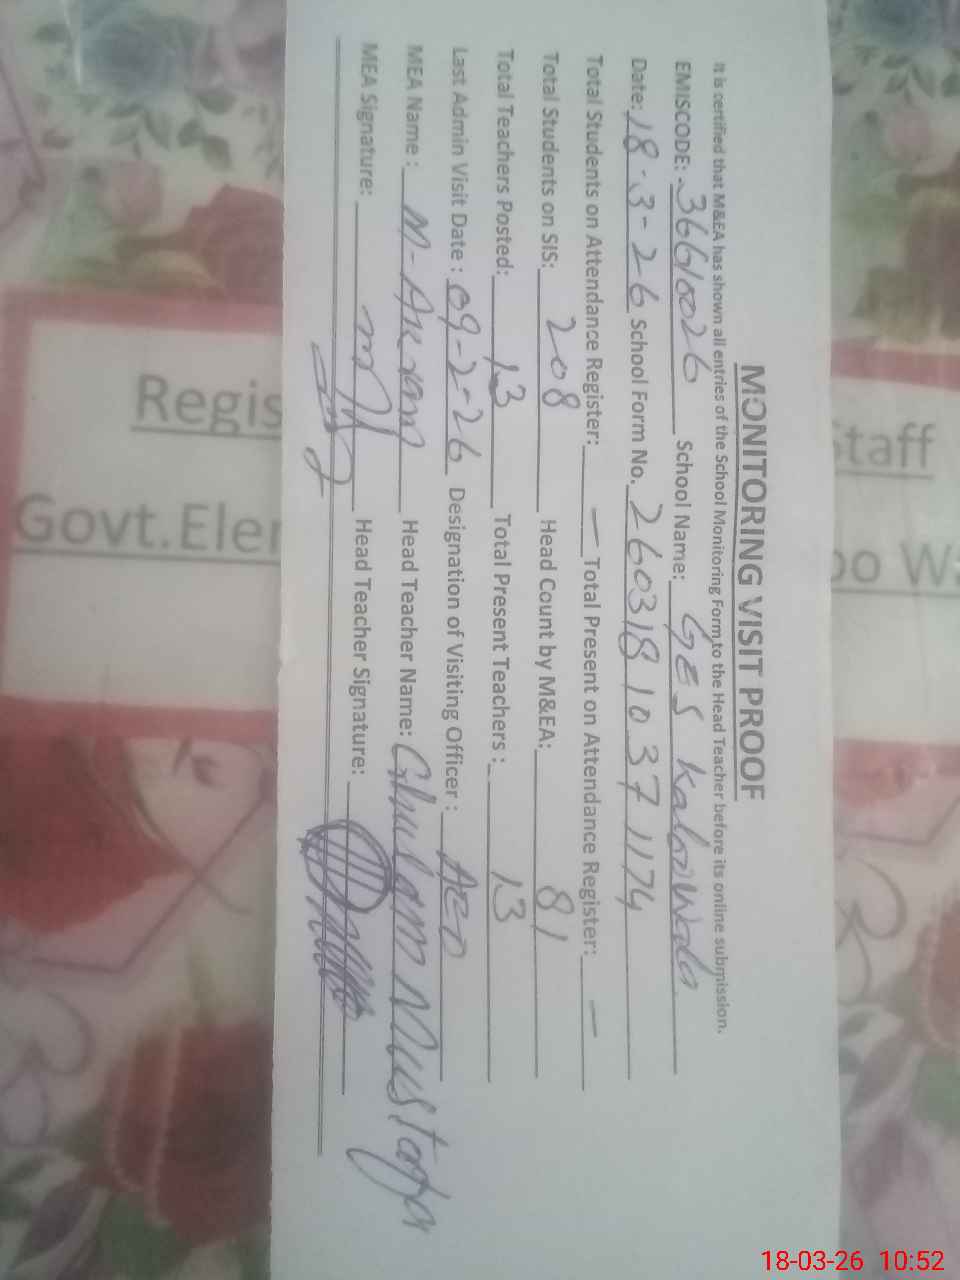 MONITORING VISIT PROOF
It is certified that M&EA has shown all entries of the School Monitoring Form,to the Head Teacher before its online submission.
EMISCODE: 36610026 School Name: GES Kaloowala
Date: 18-3-26 School Form No. 26031810371174
Total Students on Attendance Register: — Total Present on Attendance Register: —
Total Students on SIS: 208 Head Count by M&EA: 81
Total Teachers Posted: 13 Total Present Teachers : 13
Last Admin Visit Date : 09-2-26 Designation of Visiting Officer : AEO
MEA Name : M- Akram Head Teacher Name: Ghulam Mustafa
MEA Signature: Head Teacher Signature:
Regis
Staff
Govt.Elen
oo Wa
18-03-26 10:52